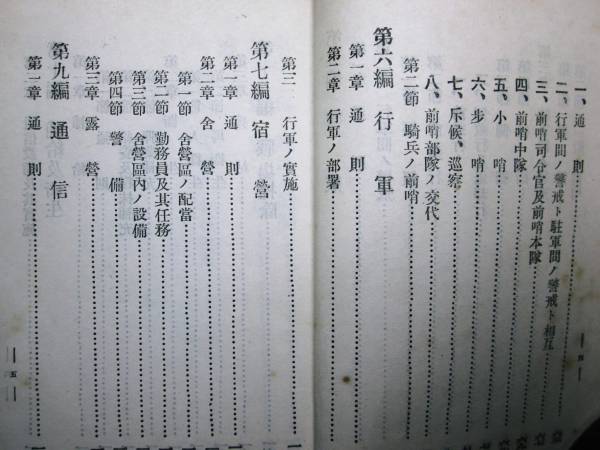 一、通則
二、行軍間ノ警戒ト駐軍間ノ警戒ト相互
三、前哨司令官及前哨本隊
四、前哨中隊
五、小哨
六、步哨
七、斥候、巡察
八、前哨部隊ノ交代
第二節 騎兵ノ前哨
第六編 行軍
第一章 通則
第二章 行軍ノ部署
四
第三 行軍ノ實施
第七編 宿營
第一章 通則
第二章 舍營
第一節 舍營區ノ配當
第二節 勤務員及其任務
第三節 舍營區內ノ設備
第四節 警備
第三章 露營
第九編 通信
第一章 通則
五